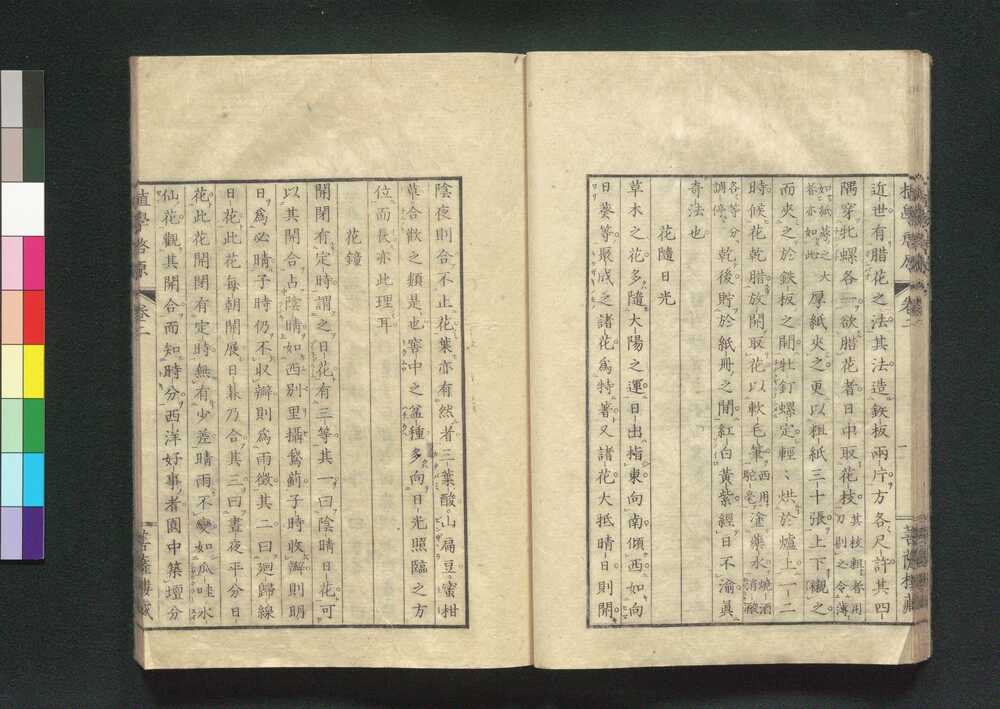 近世有腊花之法其法造鉄板兩片方各尺許其四
隅穿牝螺各一欲腊花者日中取花枝其枝粗者用刀剔之令薄
如紙蕚之大者亦如此厚紙夾之更以粗紙三十張上下襯之
而夾之於鉄板之間牡釘螺定輕〻烘於爐上一二
時候花乾腊放開取花以軟毛筆西用駝毛塗藥水燒酒消酸
各等分調停乾後貯於紙冊之間紅白黄紫經日不渝眞
奇法也
花隨日光
草木之花多隨大陽之運日出指東向南傾西如向
日葵等最成之諸花爲特著又諸花大抵晴日則開
植學啓原
卷二
菩薩樓藏
陰夜則合不止花葉亦有然者三葉酸山扁豆蜜柑
草合歡之類是也窖中之盆種多向日光照臨之方
位而長亦此理耳
花鐘
開閉有定時謂之日花有三等其一曰陰晴日花可
以其開合占陰晴如西別里攝鵞薊子時收瓣則明
日爲必晴子時仍不收瓣則爲雨徴其二曰廻歸線
日花此花每朝開展日暮乃合其三曰晝夜平分日
花此花開閉有定時無有少差晴雨不變如瓜哇水
仙花觀其開合而知時分西洋好事者園中築壇分
植學啓原
卷二
菩薩樓藏